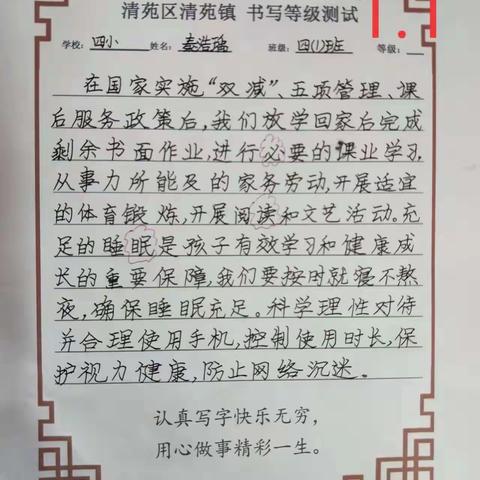 清苑区清苑镇 书写等级测试
1.1
学校: 四小 姓名: 秦浩瑞 班级: 四(1)班 等级:
在国家实施“双减”、五项管理、课
后服务政策后,我们放学回家后完成
剩余书面作业,进行必要的课业学习,
从事力所能及的家务劳动,开展适宜
的体育锻炼,开展阅读和文艺活动。充
足的睡眠是孩子有效学习和健康成
长的重要保障,我们要按时就寝不熬
夜,确保睡眠充足。科学理性对待
并合理使用手机,控制使用时长,保
护视力健康,防止网络沉迷。
认真写字快乐无穷,
用心做事精彩一生。